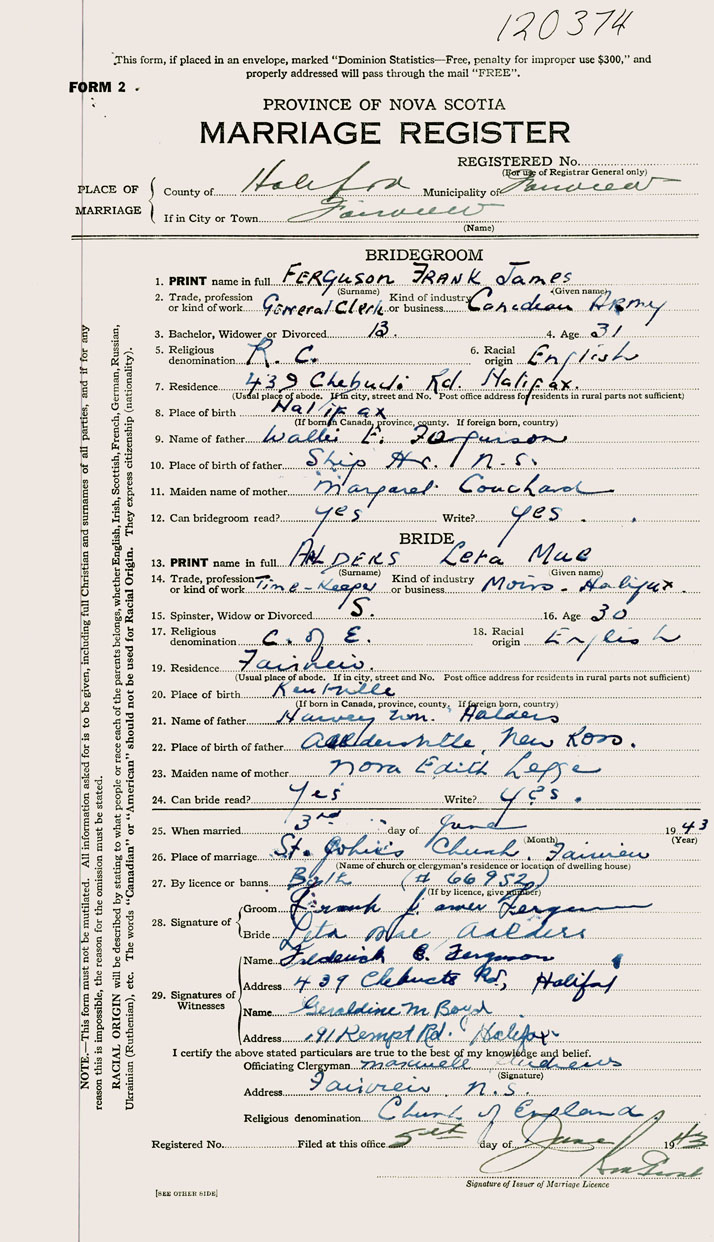 120374
This form, if placed in an envelope, marked "Dominion Statistics—Free, penalty for improper use $300," and
properly addressed will pass through the mail "FREE".
FORM 2
PROVINCE OF NOVA SCOTIA
MARRIAGE REGISTER
REGISTERED No.
(For use of Registrar General only)
PLACE OF MARRIAGE
County of Halifax Municipality of Fairview
If in City or Town Fairview
(Name)
BRIDEGROOM
1. PRINT name in full FERGUSON FRANK James
(Surname) (Given name)
2. Trade, profession or kind of work General Clerk Kind of industry or business Canadian ARmy
3. Bachelor, Widower or Divorced B. 4. Age 31
5. Religious denomination R. C. 6. Racial origin English
7. Residence 439 Chebucto Rd. Halifax.
(Usual place of abode. If in city, street and No. Post office address for residents in rural parts not sufficient)
8. Place of birth Halifax
(If born in Canada, province, county. If foreign born, country)
9. Name of father Walter F. Ferguson
10. Place of birth of father Ship Hr. N.S.
11. Maiden name of mother Margaret Couchard
12. Can bridegroom read? yes Write? yes
BRIDE
13. PRINT name in full AALDERS Leta Mae
(Surname) (Given name)
14. Trade, profession or kind of work Time-Keeper Kind of industry or business Moirs. Halifax.
15. Spinster, Widow or Divorced S. 16. Age 30
17. Religious denomination C. of E. 18. Racial origin English
19. Residence Fairview.
(Usual place of abode. If in city, street and No. Post office address for residents in rural parts not sufficient)
20. Place of birth Kentville
(If born in Canada, province, county. If foreign born, country)
21. Name of father Harvey Wm. Aalders
22. Place of birth of father Aaldersville, New Ross.
23. Maiden name of mother Nora Edith Legge
24. Can bride read? Yes Write? Yes.
25. When married 3rd day of June 1943
(Month) (Year)
26. Place of marriage St. John's Church, Fairview
(Name of church or clergyman's residence or location of dwelling house)
27. By licence or banns (# 66952)
(If by licence, give number)
28. Signature of
Groom Frank James Ferguson
Bride Leta Mae Aalders
29. Signatures of Witnesses
Name Frederick C. Ferguson
Address 439 Chebucto Rd, Halifax
Name Geraldine M Boyd
Address 191 Kempt Rd. Halifax.
I certify the above stated particulars are true to the best of my knowledge and belief.
Officiating Clergyman Maxwell Andrews
(Signature)
Address Fairview N.S.
Religious denomination Church of England
Registered No. Filed at this office 5th day of June 1943
Signature of Issuer of Marriage Licence
[SEE OTHER SIDE]
NOTE.—This form must not be mutilated. All information asked for is to be given, including full Christian and surnames of all parties, and if for any
reason this is impossible, the reason for the omission must be stated.
RACIAL ORIGIN will be described by stating to what people or race each of the parents belongs, whether English, Irish, Scottish, French, German, Russian,
Ukrainian (Ruthenian), etc. The words "Canadian" or "American" should not be used for Racial Origin. They express citizenship (nationality).